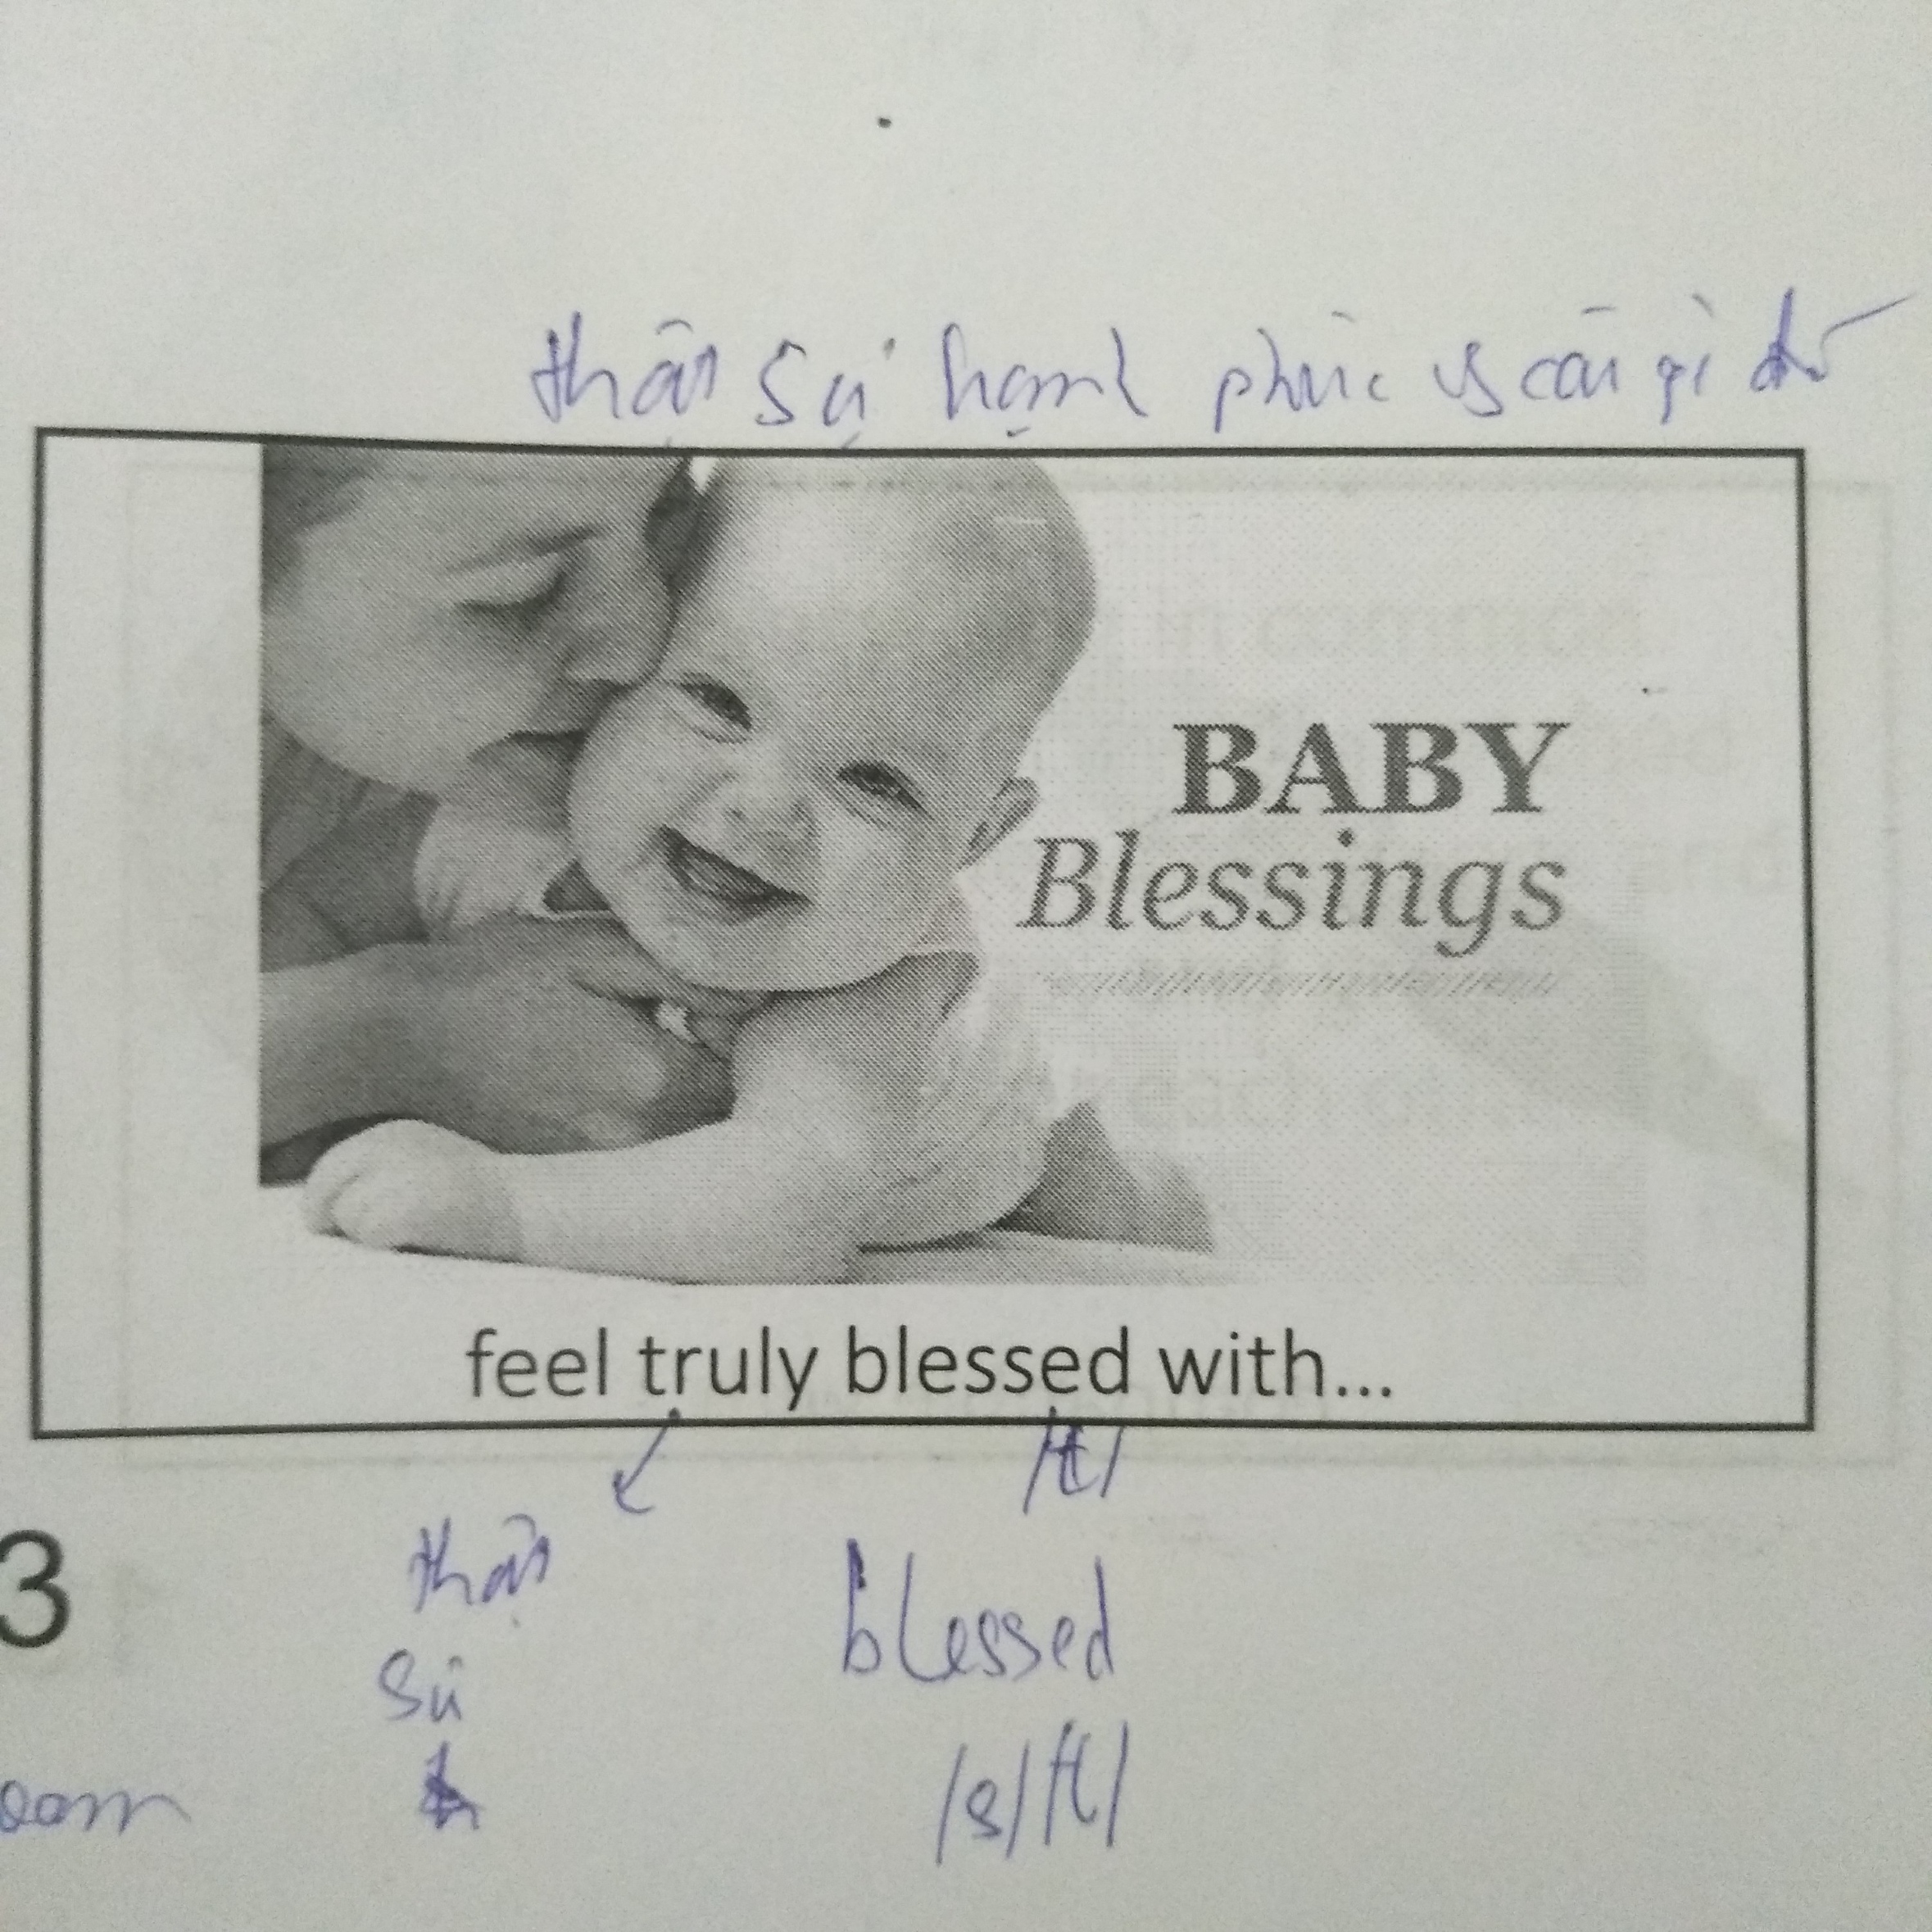 thật sự hạnh phúc vs cái gì đó
BABY
Blessings
feel truly blessed with...
/t/
3
thật
blessed
sự
/s/ /t/